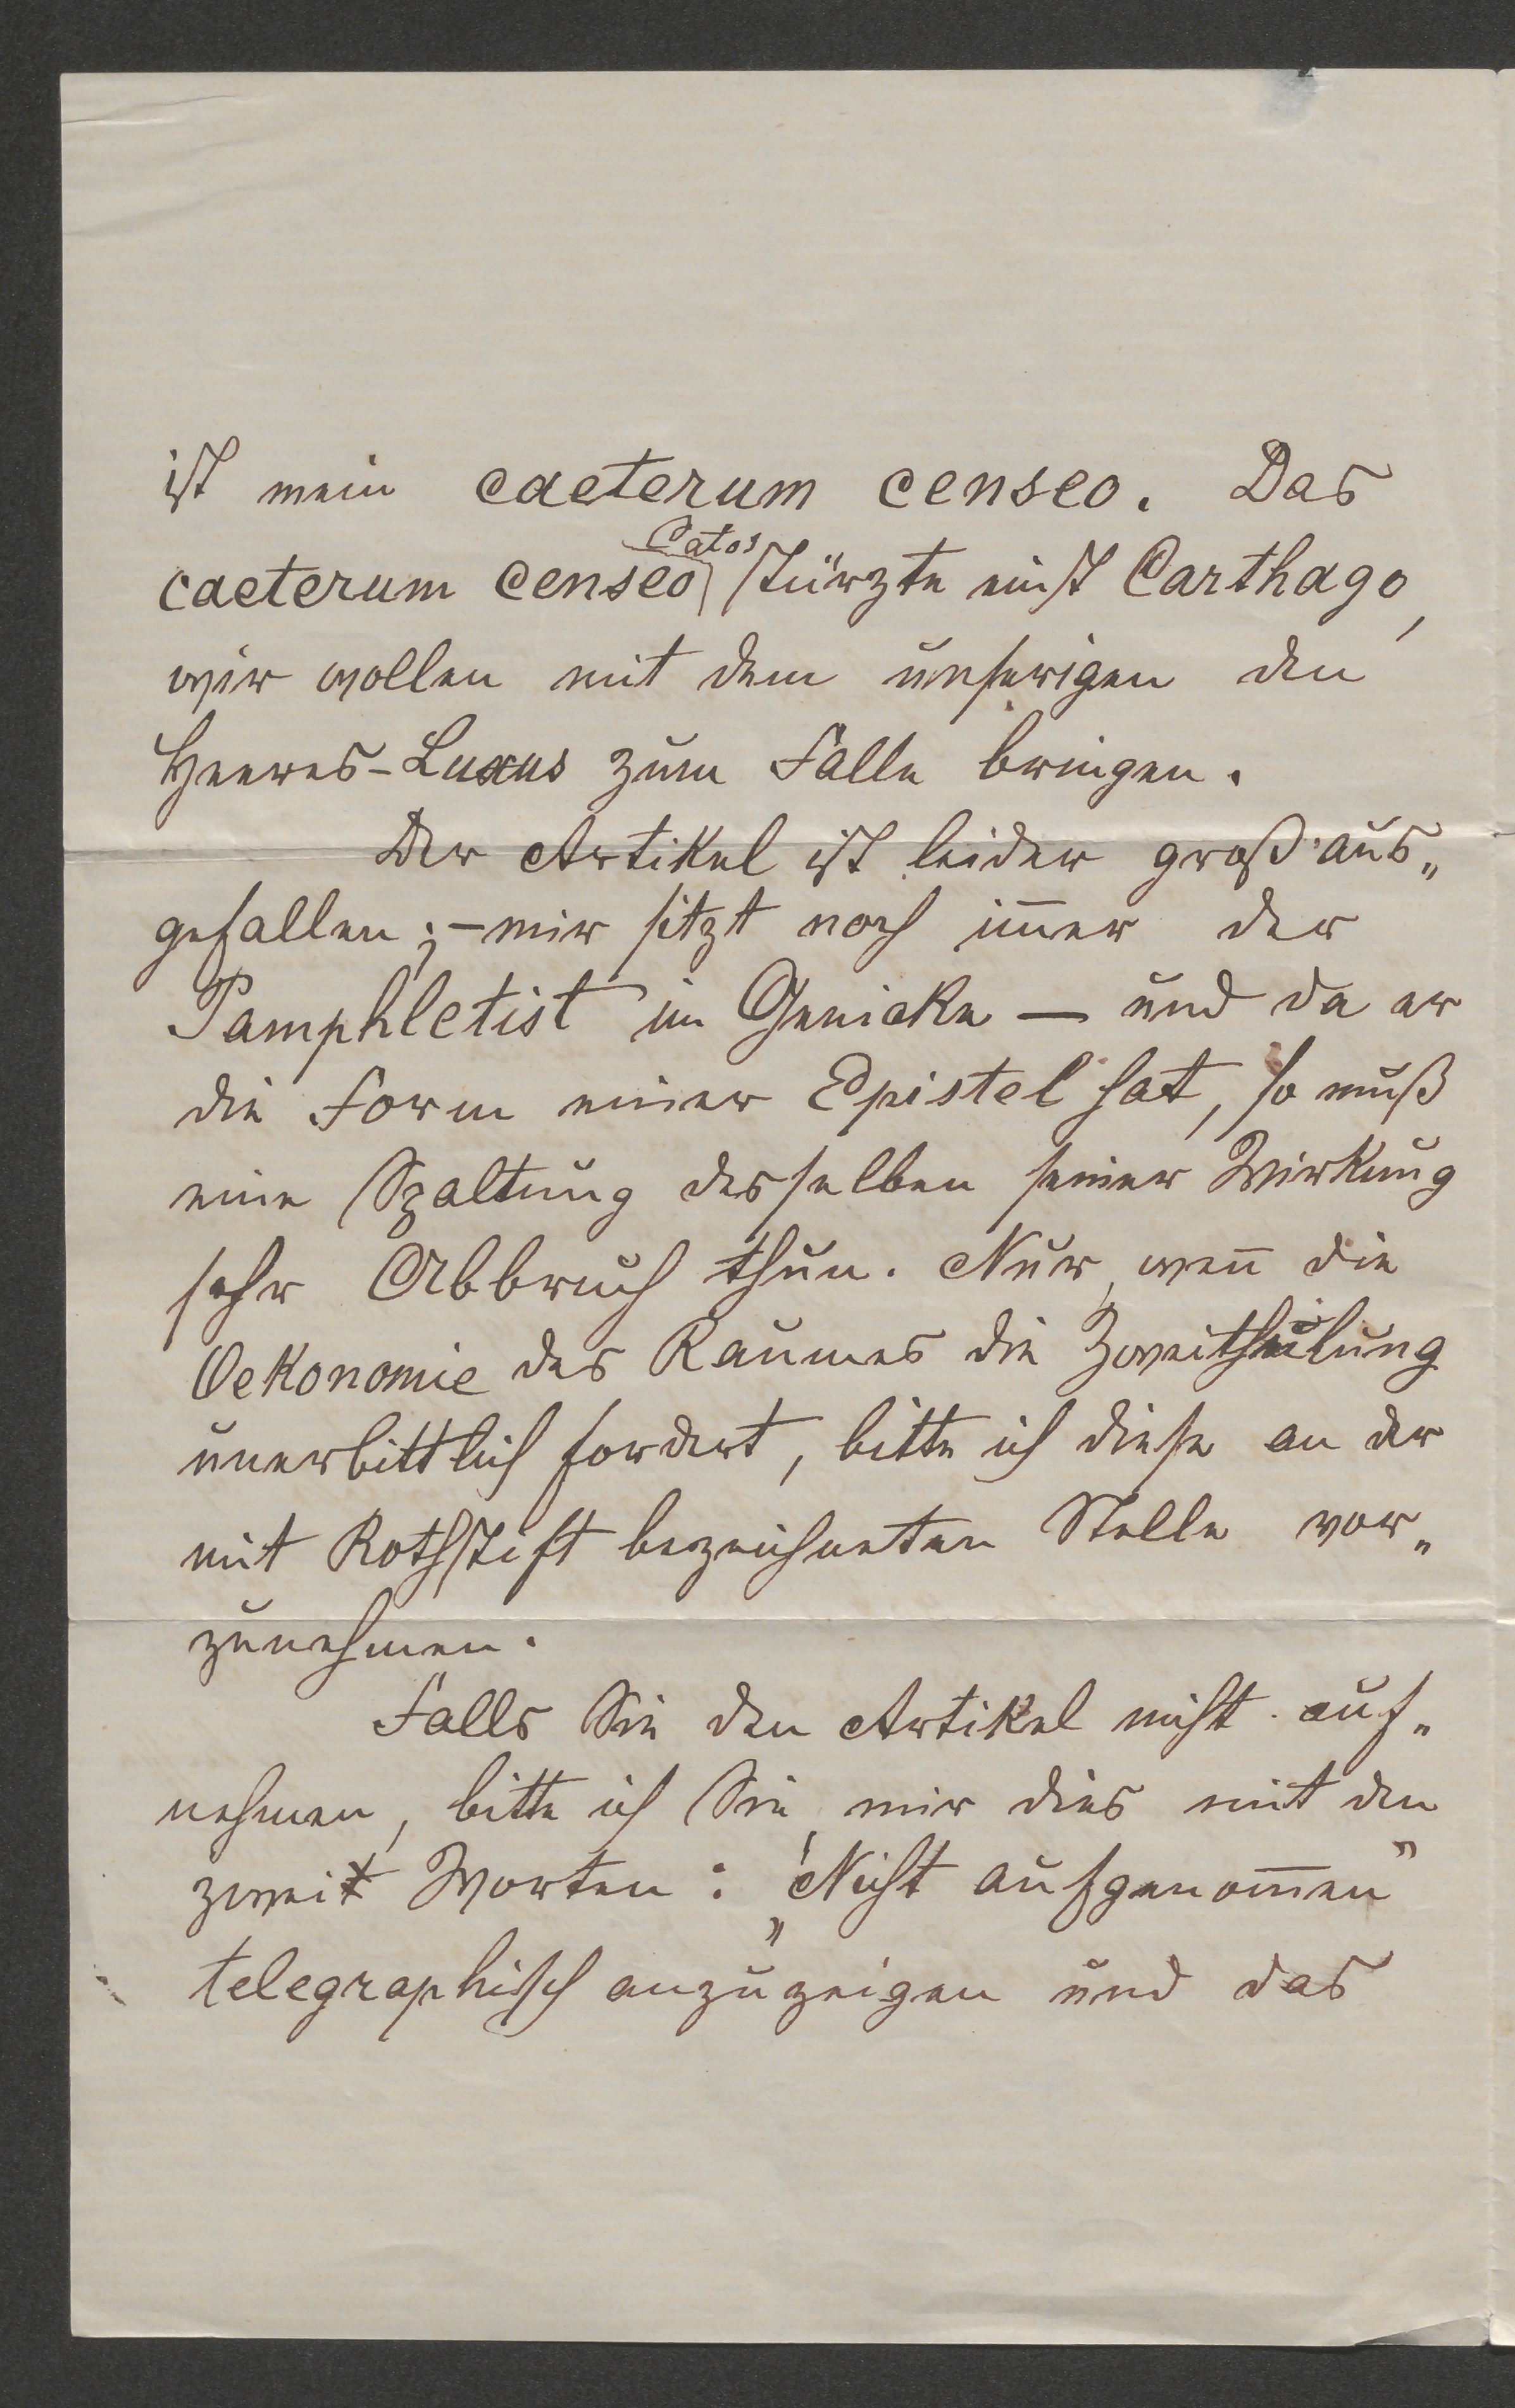 ist mein caeterum censeo. Das
Catos
caeterum censeo stürzte einst Carthago,
wir wollen mit dem unserigen den
Heeres-Luxus zum Falle bringen.
Der Artikel ist leider groß aus„
gefallen; – mir sitzt noch im̅er der
Pamphletist im Genicke — und da er
die Form einer Epistel hat, so muß
eine Spaltung desselben seiner Wirkung
sehr Abbruch thun. Nur, wen̅ die
Oekonomie des Raumes die Zweitheilung
unerbittlich fordert, bitte ich diese an der
mit Rothstift bezeichneten Stelle vor„
zunehmen.
Falls Sie den Artikel nicht auf„
nehmen, bitte ich Sie, mir dies mit den
zwei Worten: „Nicht aufgenom̅en”
telegraphisch anzuzeigen und das